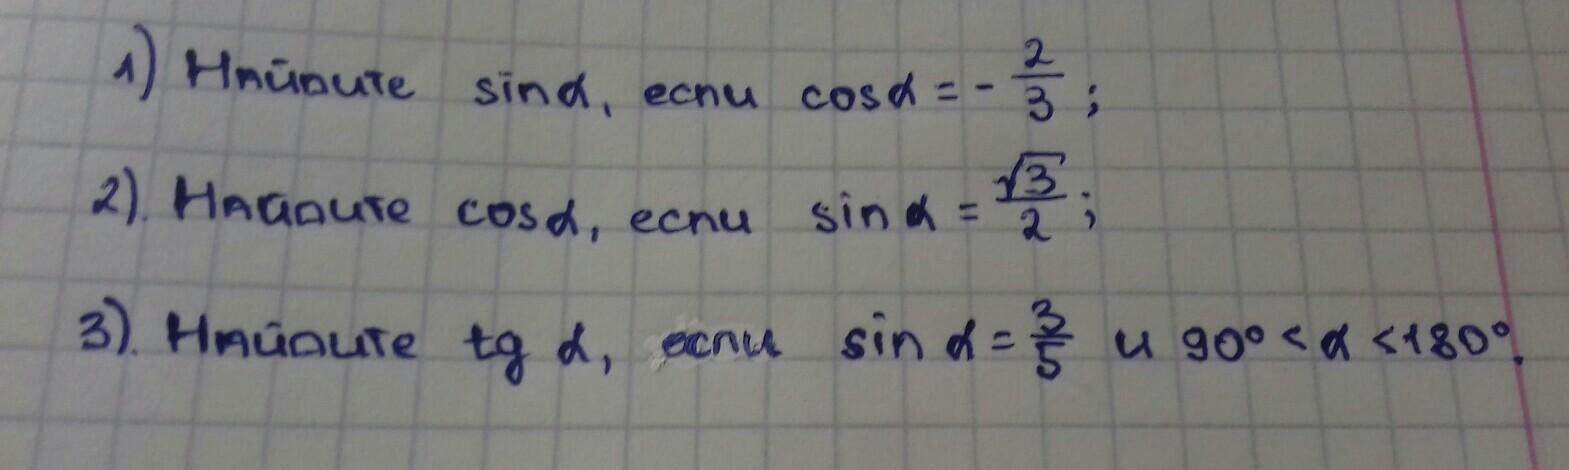 1) Найдите sinα, если cosα = - 2/3 ;
2). Найдите cosα, если sin α = √3/2 ;
3). Найдите tg α, если sin α = 3/5 и 90° < α < 180°.